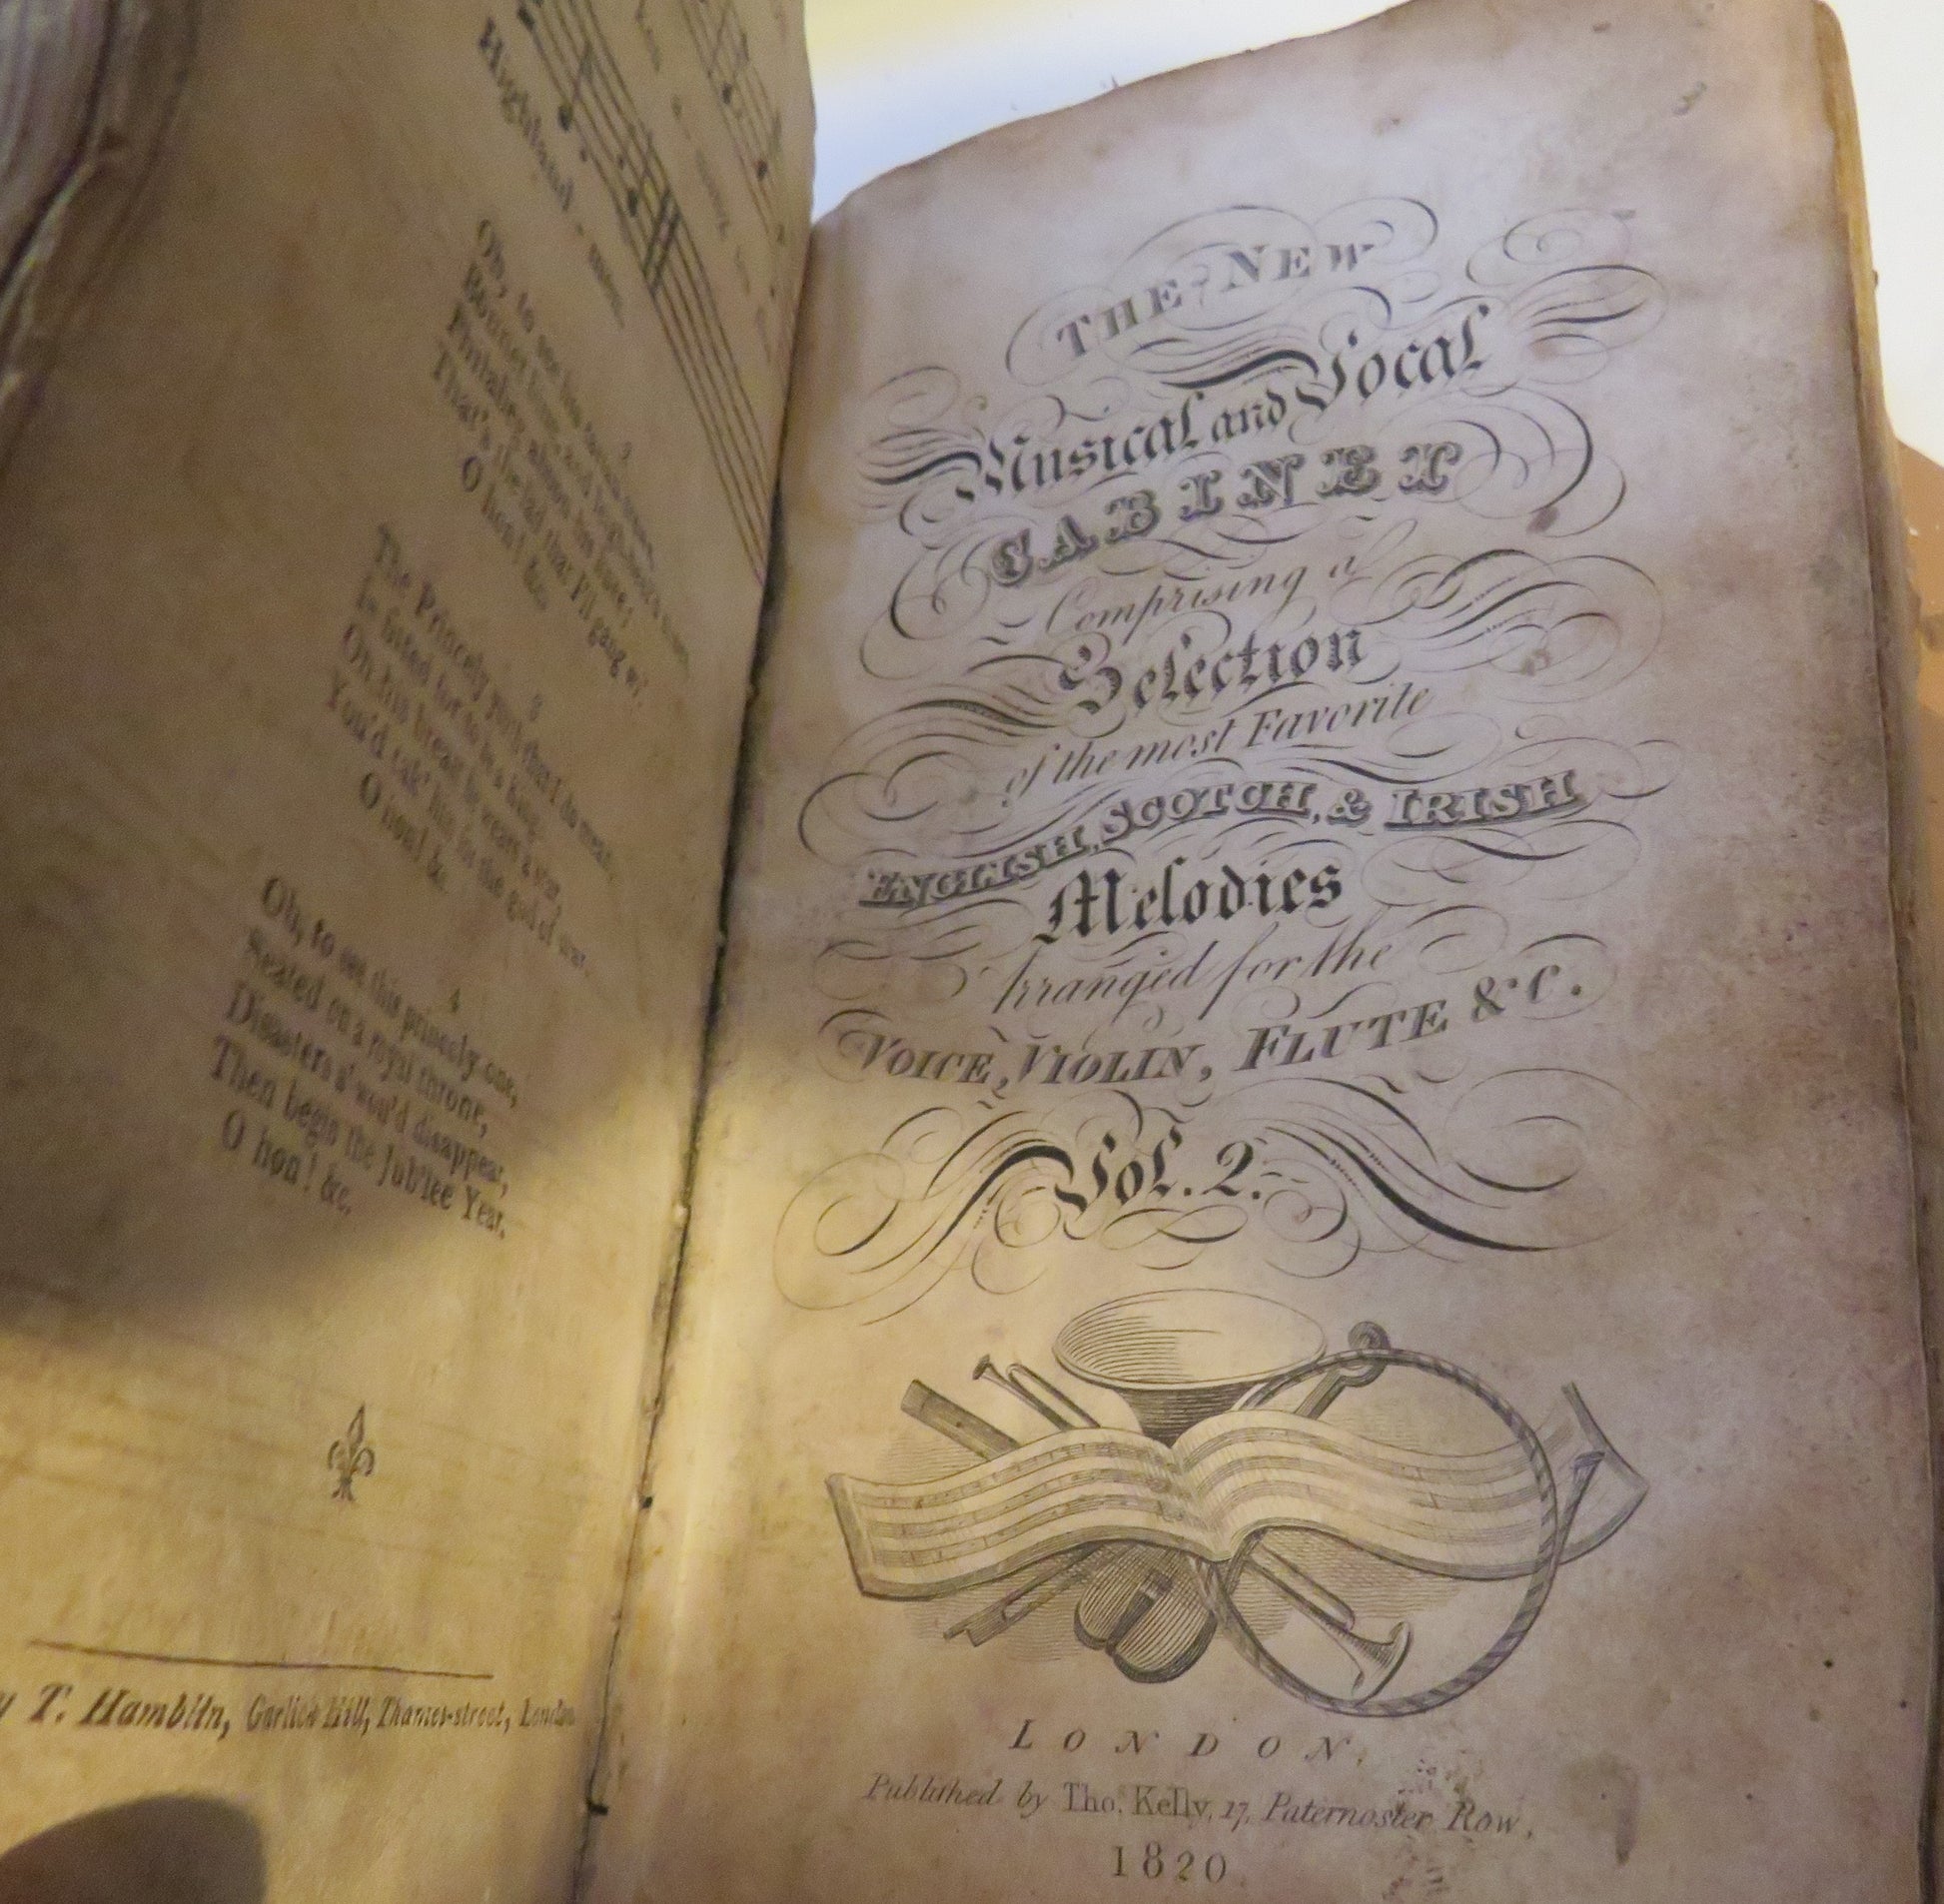 Highland - men.
2
Oh, to see his
That's the lad that I'll gang wi'
O hon! &c.
3
The Princely youth that I do mean,
Is fitted for to be a King,
On his breast he wears a star,
You'd tak' him for the god of war.
O hon! &c.
4
Oh, to see this princely one,
Seated on a royal throne,
Disasters a' wou'd disappear,
Then begin the Jub'lee Year.
O hon! &c.
T. Hamblin, Garlick Hill, Thames-street, London
THE NEW
Musical and Vocal
CABINET
Comprising a
Selection
of the most Favorite
ENGLISH, SCOTCH, & IRISH
Melodies
Arranged for the
VOICE, VIOLIN, FLUTE &C.
Vol. 2.
LONDON,
Published by Tho. Kelly, 17, Paternoster Row,
1820